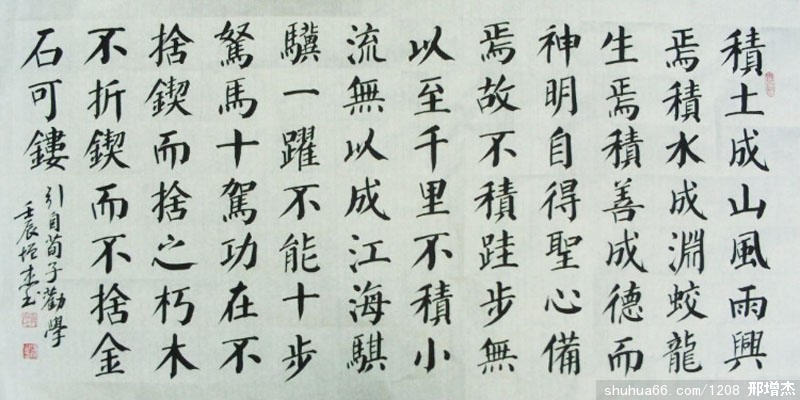 積土成山風雨興
焉積水成淵蛟龍
生焉積善成德而
神明自得聖心備
焉故不積跬步無
以至千里不積小
流無以成江海騏
驥一躍不能十步
駑馬十駕功在不
捨鍥而捨之朽木
不折鍥而不捨金
石可鏤
引自荀子勸學
壬辰增杰書
shuhua66.com/1208 邢增杰